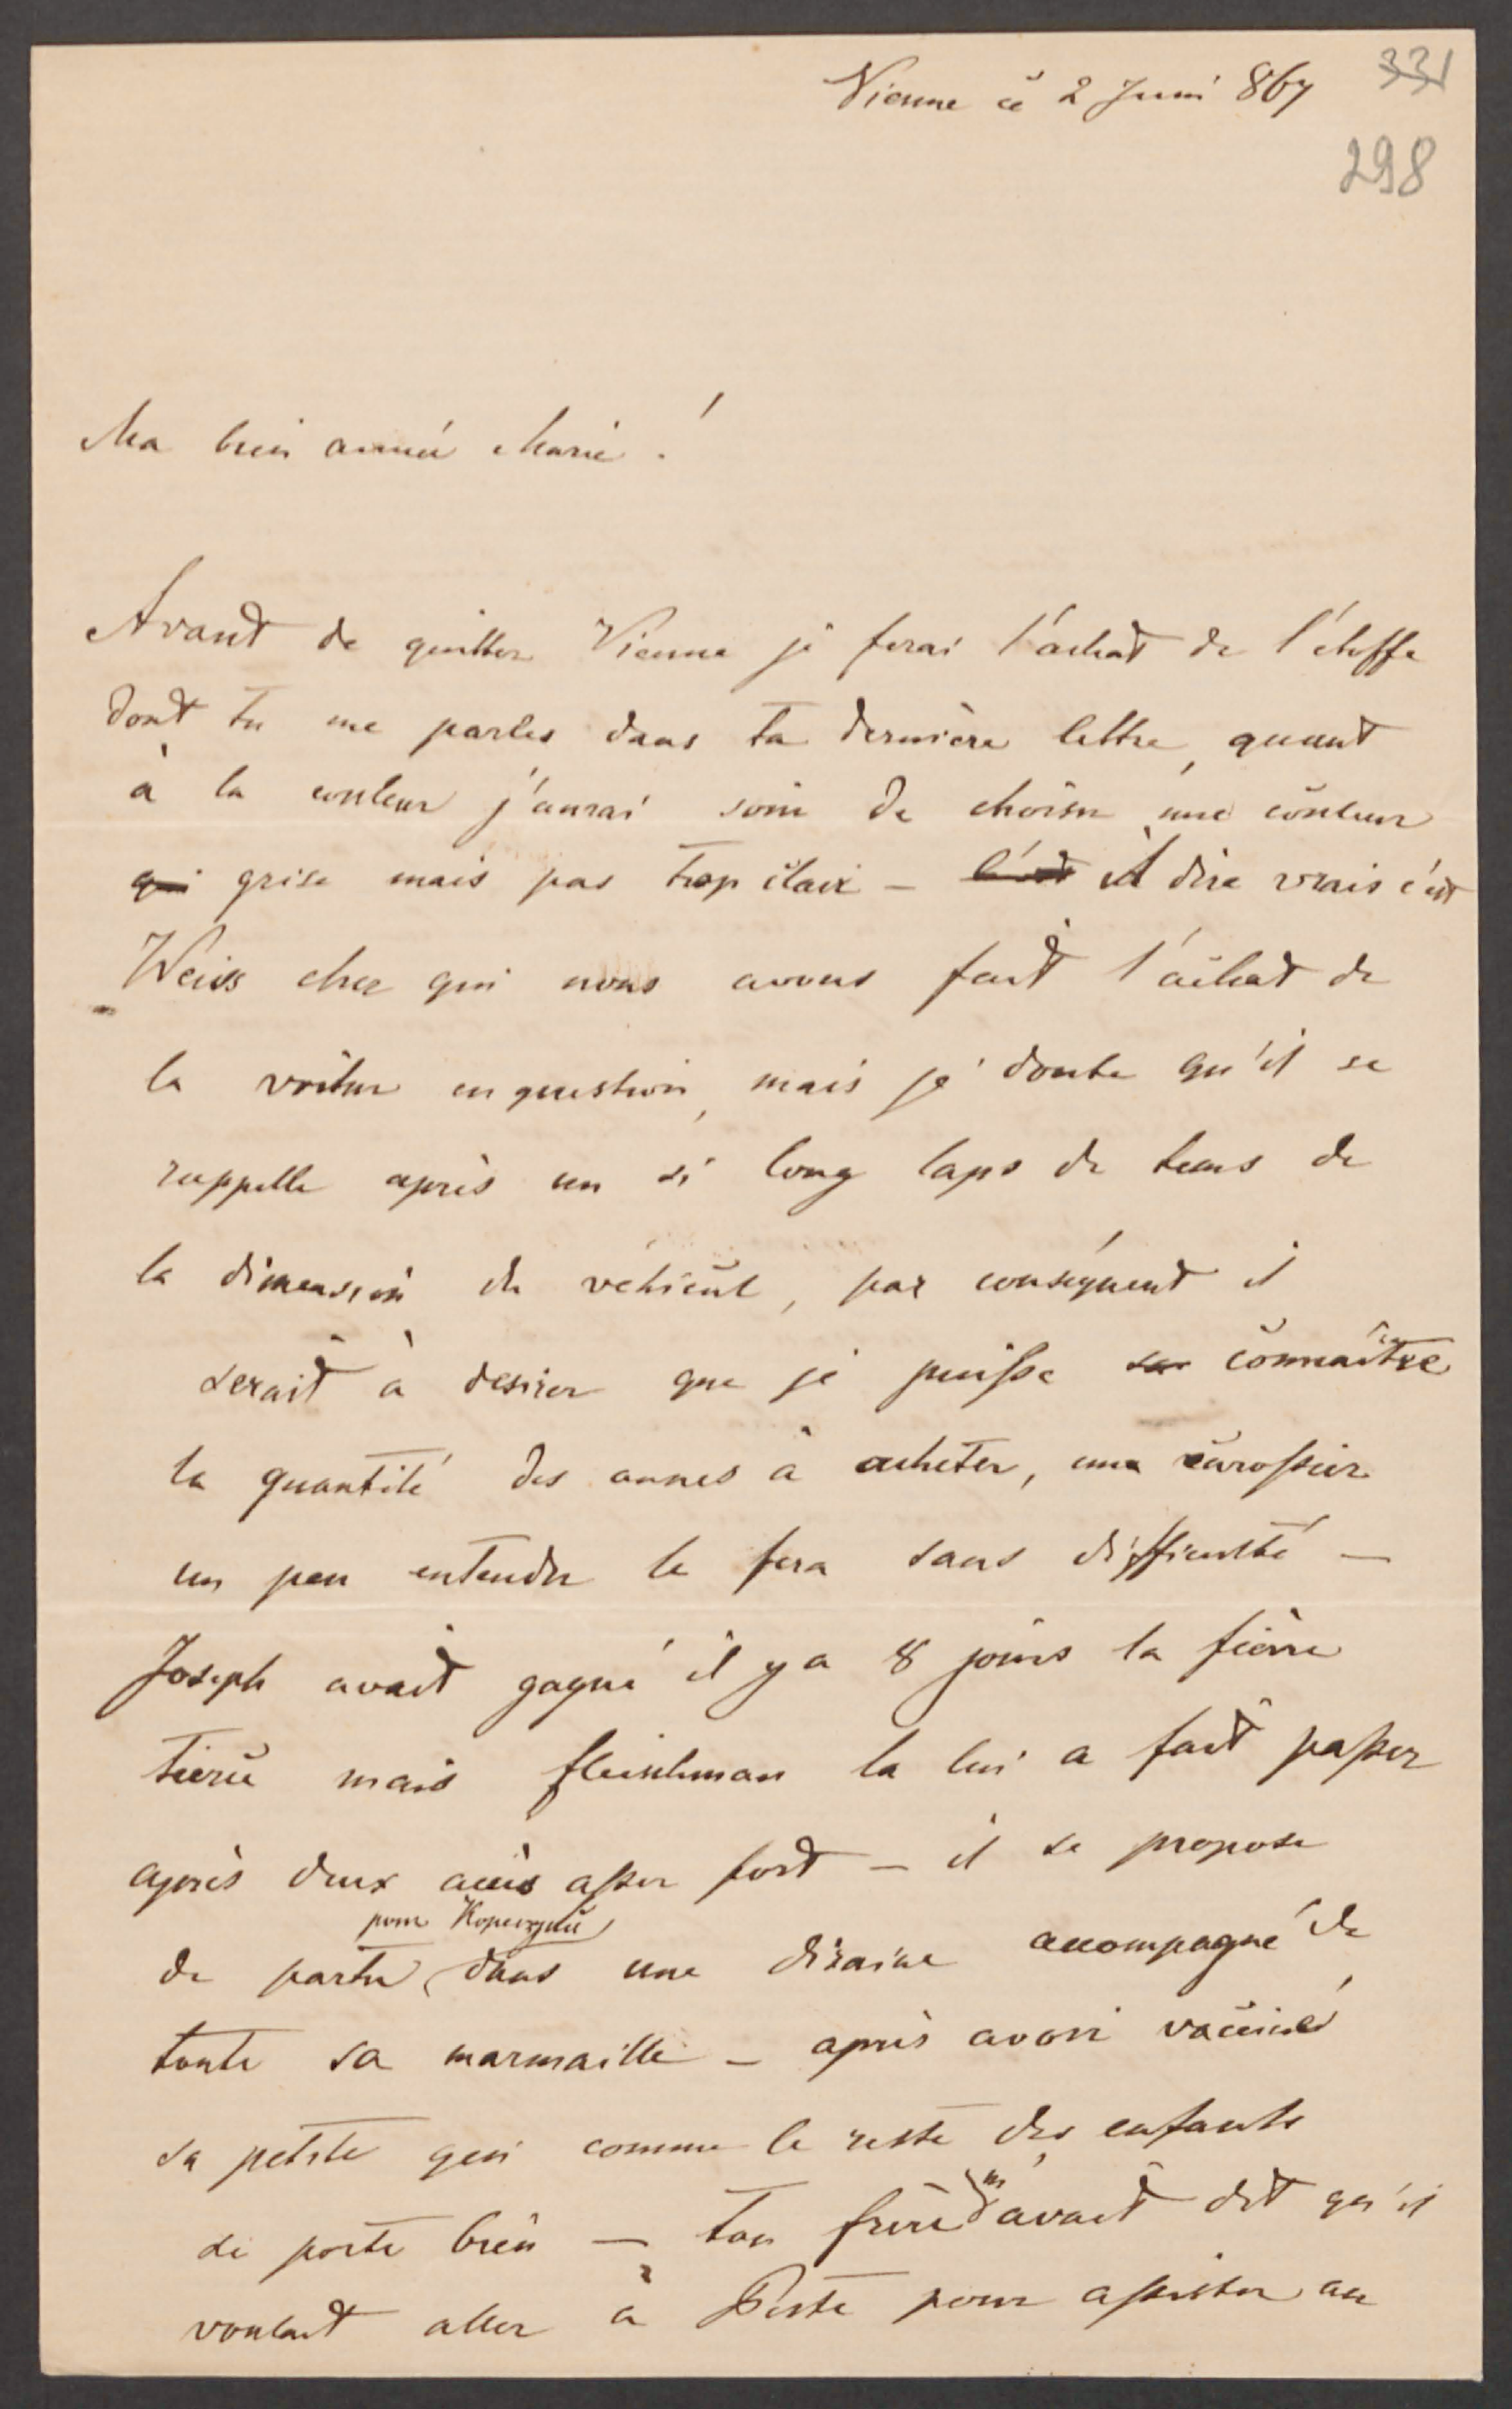 Vienne ce 2 Juni 867
331
298
Ma bien aimée Marie !
Avant de quitter Vienne je ferai l'achat de l'étoffe
dont tu me parles dans ta dernière lettre, quant
à la couleur j'aurai soin de choisir une couleur
qui grise mais pas trop clair – c'est A dire vrais c'est
Weiss chez qui nous avons fait l'achat de
la voitur en question, mais je doute qu'il se
rappelle après un si long laps de tems de
la dimension du véhicul, par conséquent il
serait à desirer que je puisse connaître
la quantité des aunes à acheter, une carossier
un peu entendu le fera sans difficulté –
Joseph avait gagné il y a 8 jours la fièvre
tierce mais fleischman la lui a fait passer
après deux accès assez fort – il se propose
pour
de partir dans une dizaine accompagné de
toute sa marmaille – après avoir vacciné
sa petite qui comme le reste des enfants
se porte bien – ton frère m'avait dit qu'il
voulait aller à Peste pour assister au